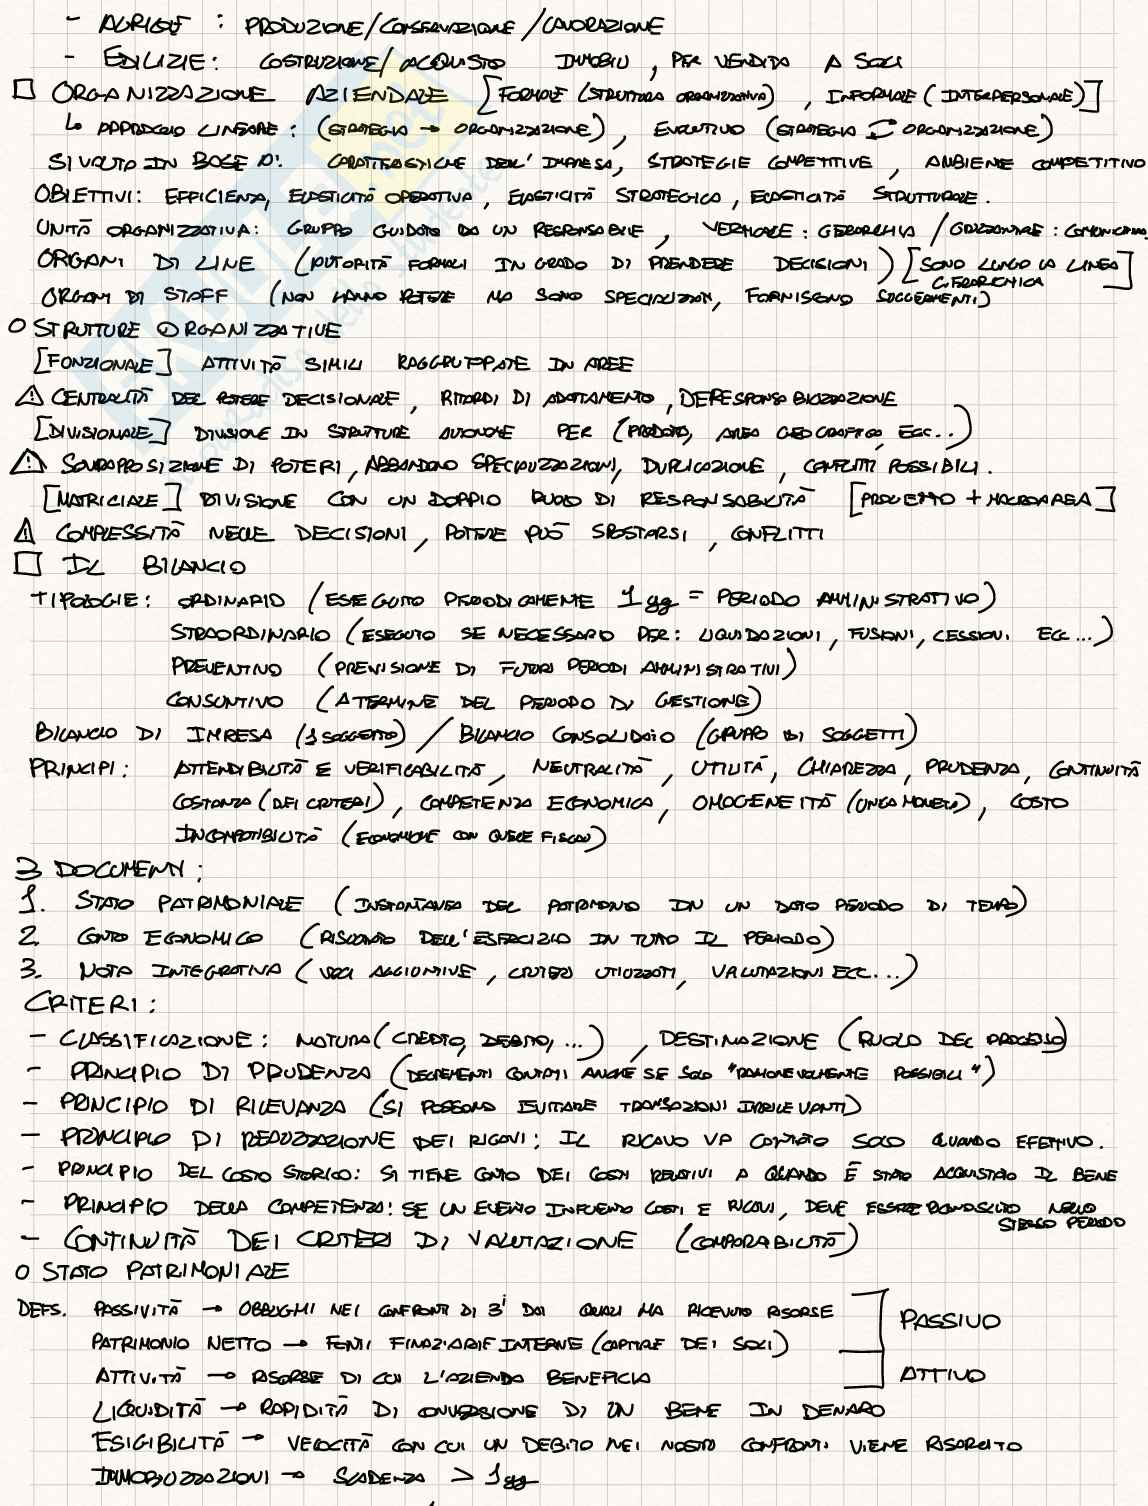 - AGRICOLE : PRODUZIONE/CONSERVAZIONE/LAVORAZIONE
- EDILIZIE : COSTRUZIONE/ACQUISTO IMMOBILI, PER VENDITA A SOCI
□ ORGANIZZAZIONE AZIENDALE [FORMALE (STRUTTURA ORGANIZZATIVA), INFORMALE (INTERPERSONALE)]
↳ APPROCCIO LINEARE : (STRATEGIA → ORGANIZZAZIONE), EVOLUTIVO (STRATEGIA ⇄ ORGANIZZAZIONE)
SI VALUTO IN BASE A: CARATTERISTICHE DELL'IMPRESA, STRATEGIE COMPETITIVE, AMBIENE COMPETITIVO
OBIETTIVI: EFFICIENZA, ELASTICITÀ OPERATIVA, ELASTICITÀ STRATEGICA, ELASTICITÀ STRUTTURALE.
UNITÀ ORGANIZZATIVA: GRUPPO GUIDATO DA UN RESPONSABILE, VERTICALE: GERARCHIA / ORIZZONTALE:
ORGANI DI LINE (AUTORITÀ FORMALI IN GRADO DI PRENDERE DECISIONI) [SONO LUNGO LA LINEA GERARCHICA]
ORGANI DI STAFF (NON HANNO POTERE MA SONO SPECIALIZZATI, FORNISCONO SUGGERIMENTI)
O STRUTTURE ORGANIZZATIVE
[FONZIONALE] ATTIVITÀ SIMILI RAGGRUPPATE IN AREE
⚠ CENTRALITÀ DEL POTERE DECISIONALE, RITARDI DI ADATTAMENTO, DERESPONSABILIZZAZIONE
[DIVISIONALE] DIVISIONE IN STRUTTURE AUTONOME PER (PRODOTTO, AREA GEOGRAFICA, ECC..)
⚠ SOVRAPPOSIZIONE DI POTERI, ABBANDONO SPECIALIZZAZIONI, DUPLICAZIONE, CONFLITTI POSSIBILI.
[MATRICIALE] DIVISIONE CON UN DOPPIO RUOLO DI RESPONSABILITÀ [PROGETTO + MACROAREA]
⚠ COMPLESSITÀ NELLE DECISIONI, POTERE PUÒ SPOSTARSI, CONFLITTI
□ IL BILANCIO
TIPOLOGIE: ORDINARIO (ESEGUITO PERIODICAMENTE 1gg = PERIODO AMMINISTRATIVO)
STRAORDINARIO (ESEGUITO SE NECESSARIO PER: LIQUIDAZIONI, FUSIONI, CESSIONI ECC...)
PREVENTIVO (PREVISIONE DI FUTURI PERIODI AMMINISTRATIVI)
CONSUNTIVO (A TERMINE DEL PERIODO DI GESTIONE)
BILANCIO DI IMPRESA (1 SOGGETTO) / BILANCIO CONSOLIDATO (GRUPPO DI SOGGETTI)
PRINCIPI: ATTENDIBILITÀ E VERIFICABILITÀ, NEUTRALITÀ, UTILITÀ, CHIAREZZA, PRUDENZA, CONTINUITÀ
COSTANZA (DEI CRITERI), COMPETENZA ECONOMICA, OMOGENEITÀ (UNICA MONETA), COSTO
INCOMPATIBILITÀ (ECONOMICHE CON QUELLE FISCALI)
3 DOCUMENTI:
1. STATO PATRIMONIALE (ISTANTANEA DEL PATRIMONIO IN UN DATO PERIODO DI TEMPO)
2. CONTO ECONOMICO (RISULTATO DELL'ESERCIZIO IN TUTTO IL PERIODO)
3. NOTA INTEGRATIVA (VOCI AGGIUNTIVE, CRITERI UTILIZZATI, VALUTAZIONI ECC...)
CRITERI:
- CLASSIFICAZIONE: NATURA (CREDITO, DEBITO, ...), DESTINAZIONE (RUOLO DEL PROCESSO)
- PRINCIPIO DI PRUDENZA (DECREMENTI CONTATI ANCHE SE SOLO "RAGIONEVOLMENTE POSSIBILI")
- PRINCIPIO DI RILEVANZA (SI POSSONO EVITARE TRANSAZIONI IRRILEVANTI)
- PRINCIPIO DI REALIZZAZIONE DEI RICAVI: IL RICAVO VA CONTATO SOLO QUANDO EFFETTIVO.
- PRINCIPIO DEL COSTO STORICO: SI TIENE CONTO DEI COSTI RELATIVI A QUANDO È STATO ACQUISTATO IL BENE
- PRINCIPIO DELLA COMPETENZA: SE UN EVENTO INFLUENZA COSTI E RICAVI, DEVE ESSERE RICONOSCIUTO NELLO STESSO PERIODO
- CONTINUITÀ DEI CRITERI DI VALUTAZIONE (COMPARABILITÀ)
O STATO PATRIMONIALE
DEFS. PASSIVITÀ → OBBLIGHI NEI CONFRONTI DI 3i DAI QUALI HA RICEVUTO RISORSE
PASSIVO
PATRIMONIO NETTO → FONTI FINAZIARIE INTERNE (CAPITALE DEI SOCI)
ATTIVITÀ → RISORSE DI CUI L'AZIENDA BENEFICIA
ATTIVO
LIQUIDITÀ → RAPIDITÀ DI CONVERSIONE DI UN BENE IN DENARO
ESIGIBILITÀ → VELOCITÀ CON CUI UN DEBITO NEI NOSTRI CONFRONTI VIENE RISARCITO
IMMOBILIZZAZIONI → SCADENZA > 1gg